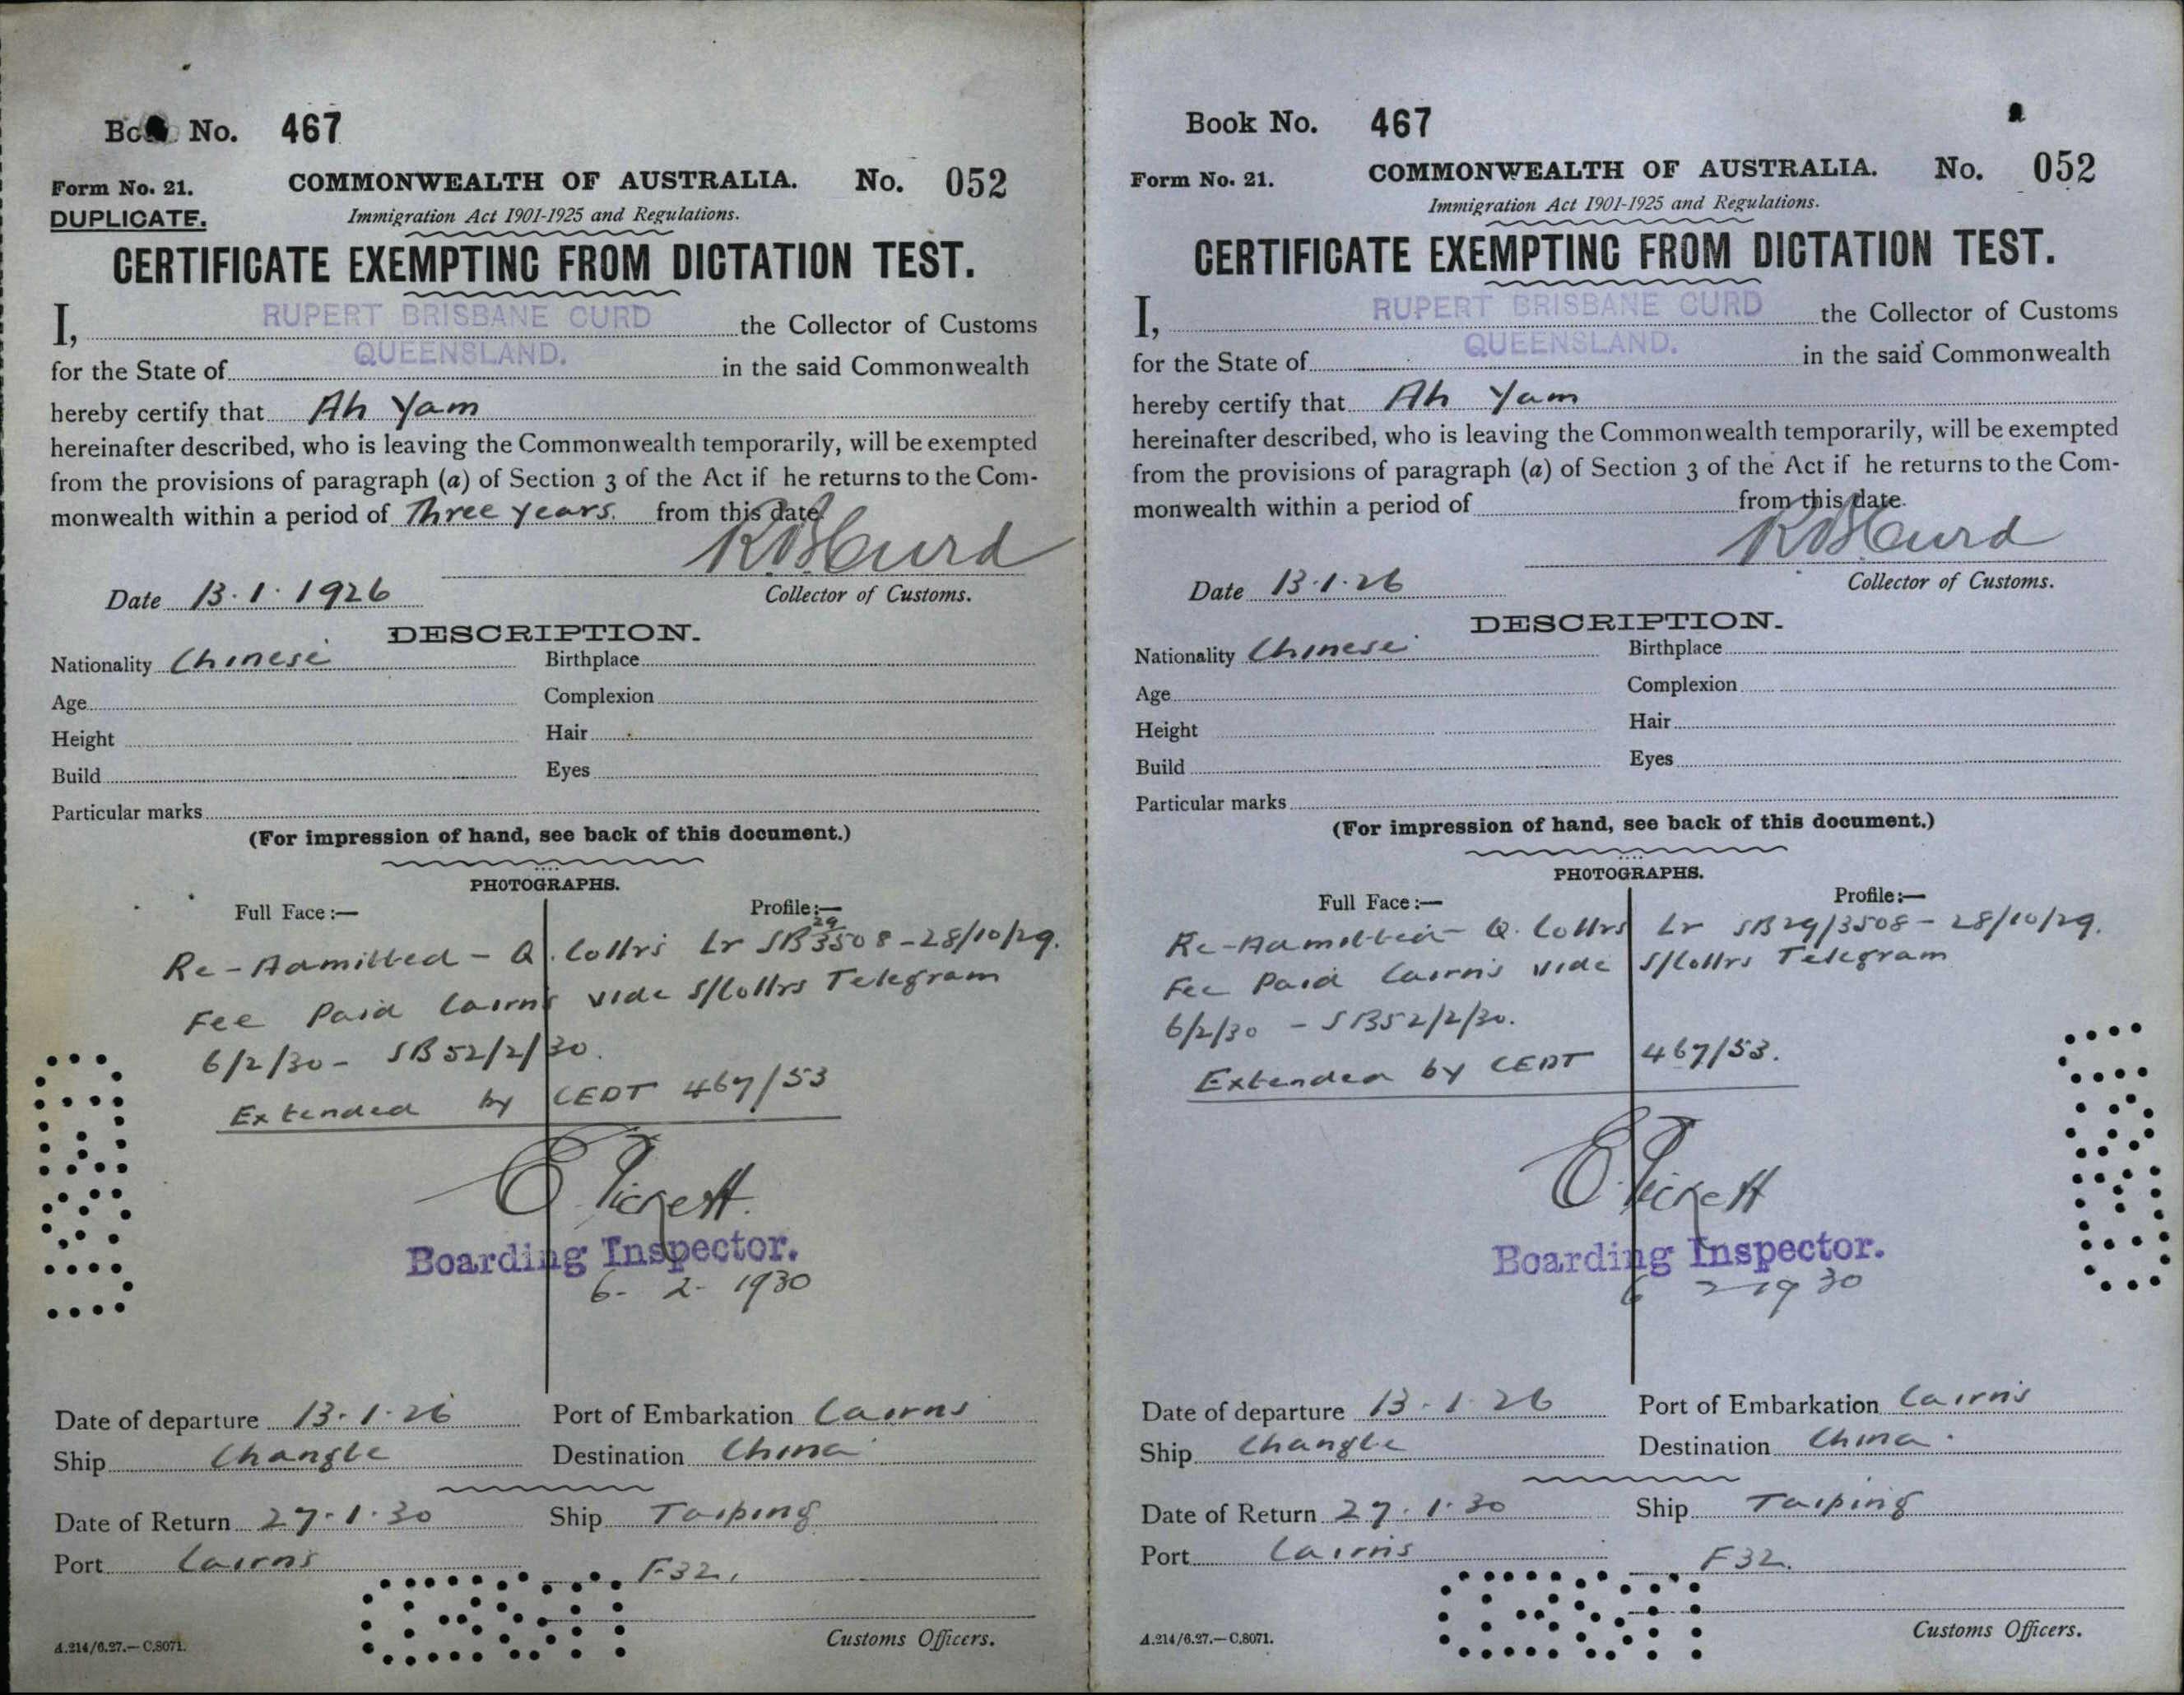 Book No. 467
Form No. 21. COMMONWEALTH OF AUSTRALIA. No. 052
DUPLICATE. Immigration Act 1901-1925 and Regulations.
CERTIFICATE EXEMPTING FROM DICTATION TEST.
I, RUPERT BRISBANE CURD the Collector of Customs
for the State of QUEENSLAND. in the said Commonwealth
hereby certify that Ah Yam
hereinafter described, who is leaving the Commonwealth temporarily, will be exempted
from the provisions of paragraph (a) of Section 3 of the Act if he returns to the Com-
monwealth within a period of Three years. from this date.
RBCurd
Date 13.1.1926 Collector of Customs.
DESCRIPTION.
Nationality Chinese Birthplace
Age Complexion
Height Hair
Build Eyes
Particular marks
(For impression of hand, see back of this document.)
PHOTOGRAPHS.
Full Face:— Profile:—
Re-Admitted - Q. Collrs Lr SB 29/3508 - 28/10/29.
Fee Paid Cairns vide S/Collrs Telegram
6/2/30 - SB52/2/30.
Extended by CEDT 467/53
E. Pickett.
Boarding Inspector.
6- 2- 1930
Date of departure 13.1.26 Port of Embarkation Cairns
Ship Changte Destination China
Date of Return 27.1.30 Ship Taiping
Port Cairns F32.
Customs Officers.
A.214/6.27.—C.8071.
Book No. 467
Form No. 21. COMMONWEALTH OF AUSTRALIA. No. 052
Immigration Act 1901-1925 and Regulations.
CERTIFICATE EXEMPTING FROM DICTATION TEST.
I, RUPERT BRISBANE CURD the Collector of Customs
for the State of QUEENSLAND. in the said Commonwealth
hereby certify that Ah Yam
hereinafter described, who is leaving the Commonwealth temporarily, will be exempted
from the provisions of paragraph (a) of Section 3 of the Act if he returns to the Com-
monwealth within a period of from this date.
RBCurd
Date 13.1.26 Collector of Customs.
DESCRIPTION.
Nationality Chinese Birthplace
Age Complexion
Height Hair
Build Eyes
Particular marks
(For impression of hand, see back of this document.)
PHOTOGRAPHS.
Full Face:— Profile:—
Re-Admitted - Q. Collrs Lr SB29/3508 - 28/10/29.
Fee Paid Cairns vide S/Collrs Telegram
6/2/30 - SB52/2/30.
Extended by CEDT 467/53.
E. Pickett
Boarding Inspector.
6 2-1930
Date of departure 13.1.26 Port of Embarkation Cairns
Ship Changte Destination China.
Date of Return 27.1.30 Ship Taiping
Port Cairns F32.
Customs Officers.
A.214/6.27.—C.8071.